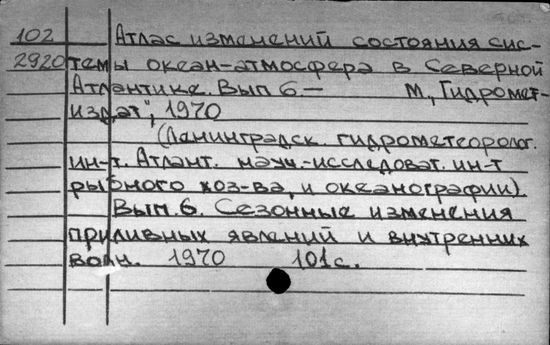 102 Атлас изменений состояния сис-
2920 темы океан-атмосфера в Северной
Атлантике. Вып 6 — М, „Гидромет-
издат", 1970
(Ленинградск. гидрометеоролог.
ин-т. Атлант. научн.-исследоват. ин-т
рыбного хоз-ва, и океанографии).
Вып. 6. Сезонные изменения
приливных явлений и внутренних
волн. 1970 101с.